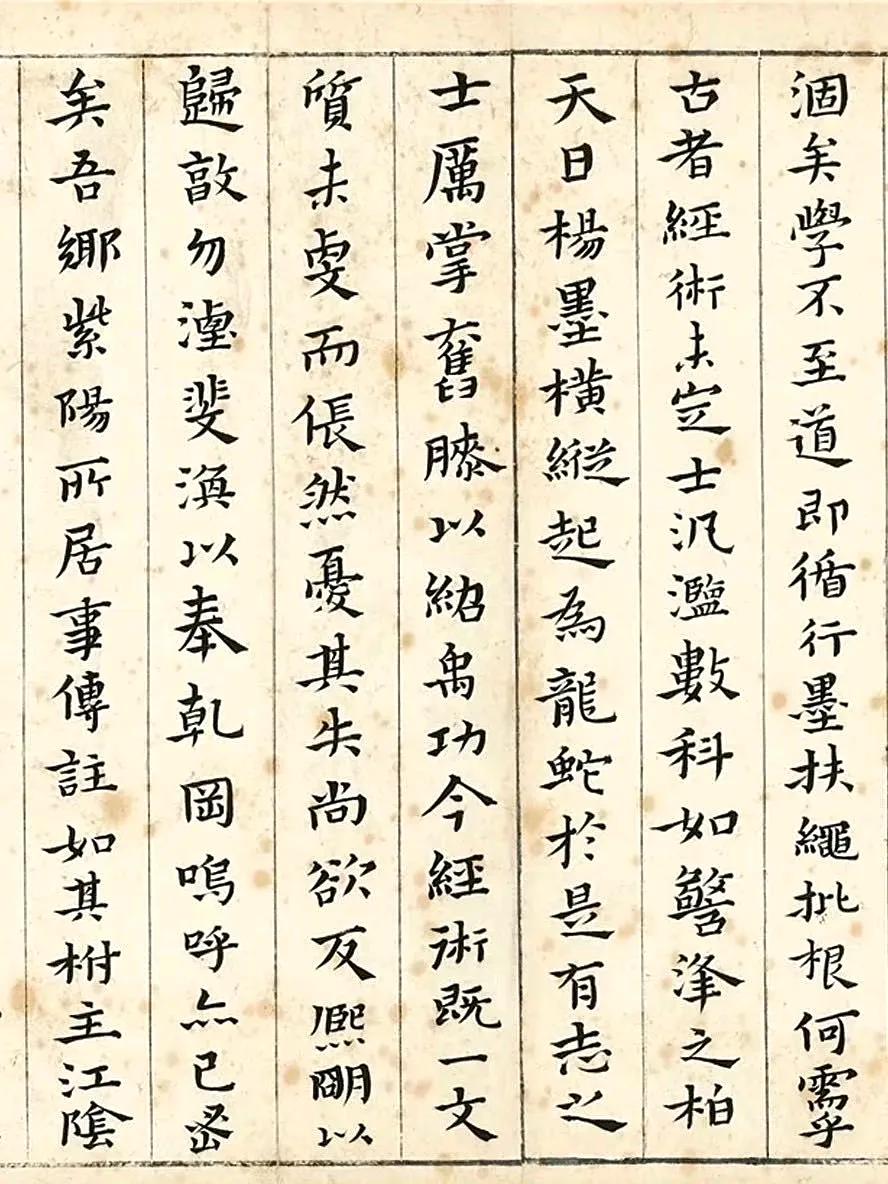 涸矣學不至道即循行墨扶繩批根何需乎
古者經術未定士汎濫數科如警浲之柏
天日楊墨橫縱起為龍蛇於是有志之
士厲掌奮膝以紹禹功今經術既一文
質未變而倀然憂其失尚欲反熙明以
歸敦勿湮斐渙以奉乾岡嗚呼亦已密
矣吾鄉紫陽所居事傳註如其柎主江陰